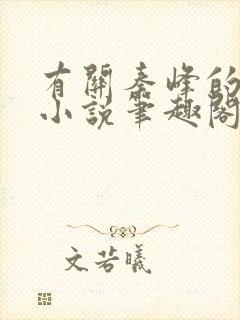 有關秦峰的
小說筆趣閣
文若曦